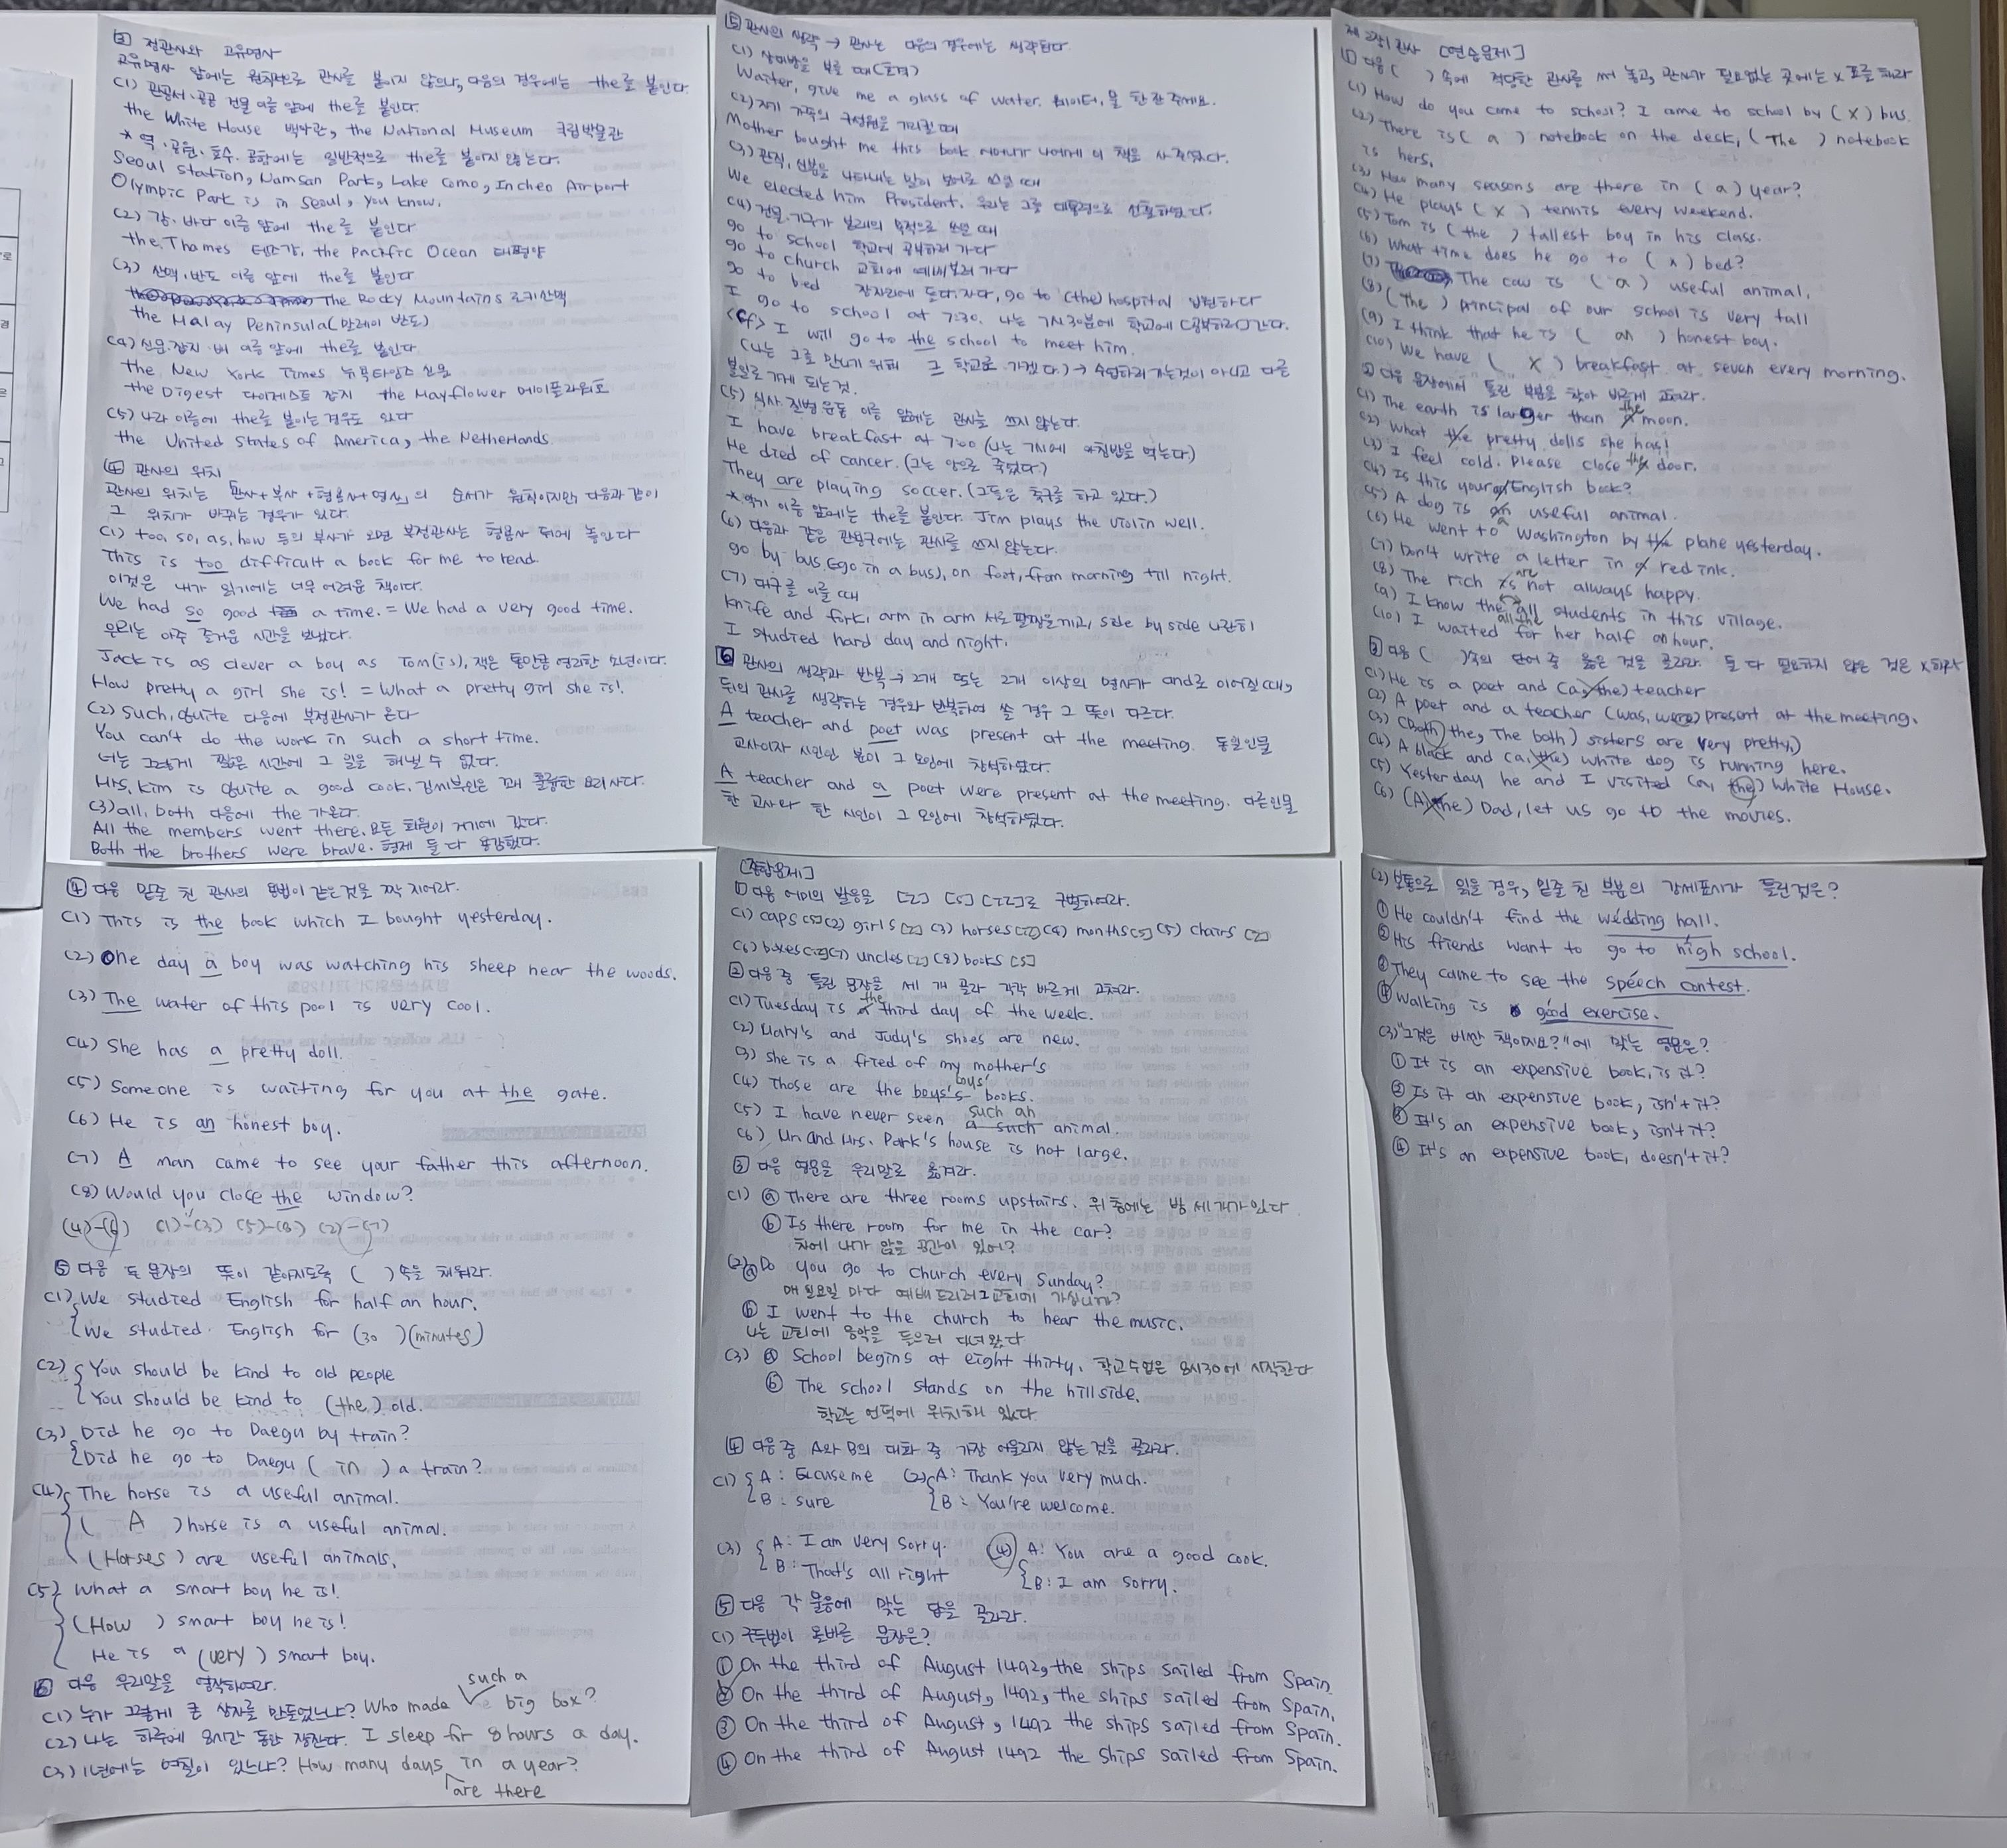 ③ 정관사와 고유명사
고유명사 앞에는 원칙적으로 관사를 붙이지 않으나, 다음의 경우에는 the를 붙인다.
(1) 관공서·공공 건물 이름 앞에 the를 붙인다.
the White House 백악관, the National Museum 국립박물관
* 역·공원·호수·공항에는 일반적으로 the를 붙이지 않는다.
Seoul Station, Namsan Park, Lake Como, Incheo Airport
Olympic Park is in Seoul, you know.
(2) 강·바다 이름 앞에 the를 붙인다
the Thames 템즈강, the Pacific Ocean 태평양
(3) 산맥·반도 이름 앞에 the를 붙인다
The Rocky Mountains 로키산맥
the Malay Peninsula(말레이 반도)
(4) 신문·잡지·배 이름 앞에 the를 붙인다.
the New York Times 뉴욕타임즈 신문
the Digest 다이제스트 잡지 the Mayflower 메이플라워호
(5) 나라 이름에 the를 붙이는 경우도 있다
the United States of America, the Netherlands
④ 관사의 위치
관사의 위치는 「관사+부사+형용사+명사」의 순서가 원칙이지만, 다음과 같이
그 위치가 바뀌는 경우가 있다.
(1) too, so, as, how 등의 부사가 오면 부정관사는 형용사 뒤에 놓인다
This is too difficult a book for me to read.
이것은 내가 읽기에는 너무 어려운 책이다.
We had so good a time. = We had a very good time.
우리는 아주 즐거운 시간을 보냈다.
Jack is as clever a boy as Tom(is), 잭은 톰만큼 영리한 소년이다.
How pretty a girl she is! = What a pretty girl she is!
(2) such, quite 다음에 부정관사가 온다
You can't do the work in such a short time.
너는 그렇게 짧은 시간에 그 일을 해낼 수 없다.
Mrs. Kim is quite a good cook. 김씨부인은 꽤 훌륭한 요리사다.
(3) all, both 다음에 the 가온다.
All the members went there. 모든 회원이 거기에 갔다.
Both the brothers were brave. 형제 둘 다 용감했다.
⑤ 관사의 생략 → 관사는 다음의 경우에는 생략된다
(1) 상대방을 부를 때(호격)
Waiter, give me a glass of water. 웨이터, 물 한 잔 주세요.
(2) 자기 가족의 구성원을 가리킬 때
Mother bought me this book 어머니가 나에게 이 책을 사 주셨다.
(3) 관직, 신분을 나타내는 말이 보어로 쓰일 때
We elected him President. 우리는 그를 대통령으로 선출하였다.
(4) 건물·가구가 본래의 목적으로 쓰일 때
go to school 학교에 공부하러 가다
go to church 교회에 예배보러 가다
go to bed 잠자리에 들다, 자다, go to (the) hospital 입원하다
I go to school at 7:30. 나는 7시 30분에 학교에 (공부하러) 간다.
<cf> I will go to the school to meet him.
(나는 그를 만나기 위해 그 학교로 가겠다.) → 수업하러 가는것이 아니고 다른
볼일로 가게 되는 것.
(5) 식사·질병·운동 이름 앞에는 관사를 쓰지 않는다.
I have breakfast at 7:00 (나는 7시에 아침밥을 먹는다)
He died of cancer. (그는 암으로 죽었다.)
They are playing soccer. (그들은 축구를 하고 있다.)
*악기 이름 앞에는 the를 붙인다. Jim plays the violin well.
(6) 다음과 같은 관용구에는 관사를 쓰지 않는다.
go by bus (go in a bus), on foot, from morning till night.
(7) 대구를 이룰 때
knife and fork, arm in arm 서로 팔짱을 끼고, side by side 나란히
I studied hard day and night.
⑥ 관사의 생략과 반복 → 2개 또는 2개 이상의 명사가 and로 이어질 때,
뒤의 관사를 생략하는 경우와 반복하여 쓸 경우 그 뜻이 다르다.
A teacher and poet was present at the meeting. 동일인물
교사이자 시인인 분이 그 모임에 참석하였다.
A teacher and a poet were present at the meeting. 다른인물
한 교사와 한 시인이 그 모임에 참석하였다.
제 2장 관사 [연습문제]
① 다음 ( ) 속에 적당한 관사를 써 놓고, 관사가 필요없는 곳에는 x 표를 하라
(1) How do you come to school? I ame to school by (x) bus.
(2) There is ( a ) notebook on the desk, (The ) notebook
is hers.
(3) How many seasons are there in ( a ) year?
(4) He plays ( x ) tennis every weekend.
(5) Tom is ( the ) tallest boy in his class.
(6) What time does he go to ( x ) bed?
(7) The cow is ( a ) useful animal,
(8) (The ) principal of our school is very tall
(9) I think that he is ( an ) honest boy.
(10) We have ( x ) breakfast at seven every morning.
② 다음 문장에서 틀린 부분을 찾아 바르게 고쳐라.
(1) The earth is larger than a the moon.
(2) What the pretty dolls she has!
(3) I feel cold. Please close a the door.
(4) Is this your an English book?
(5) A dog is an a useful animal.
(6) He went to Washington by the plane yesterday.
(7) Don't write a letter in a red ink.
(8) The rich is are not always happy.
(9) I know the all all the students in this village.
(10) I waited for her half an hour.
③ 다음 ( )속의 단어 중 옳은 것을 골라라. 둘 다 필요하지 않은 것은 x하라
(1) He is a poet and (a, the) teacher
(2) A poet and a teacher (was, were) present at the meeting.
(3) (Both the, The both) sisters are very pretty.
(4) A black and (a, the) white dog is running here.
(5) Yesterday he and I visited (a, the) White House.
(6) (A, The) Dad, let us go to the movies.
④ 다음 밑줄 친 관사의 용법이 같은것을 짝 지어라.
(1) This is the book which I bought yesterday.
(2) One day a boy was watching his sheep near the woods.
(3) The water of this pool is very cool.
(4) She has a pretty doll.
(5) Someone is waiting for you at the gate.
(6) He is an honest boy.
(7) A man came to see your father this afternoon.
(8) Would you close the window?
(4)-(6) (1)-(3) (5)-(8) (2)-(7)
⑤ 다음 두 문장의 뜻이 같아지도록 ( ) 속을 채워라.
(1) We studied English for half an hour.
We studied English for (30 )(minutes)
(2) You should be kind to old people
You should be kind to (the) old.
(3) Did he go to Daegu by train?
Did he go to Daegu ( in ) a train?
(4) The horse is a useful animal.
( A ) horse is a useful animal.
(Horses ) are useful animals.
(5) What a smart boy he is!
(How ) smart boy he is!
He is a (very ) smart boy.
⑥ 다음 우리말을 영작하여라.
(1) 누가 그렇게 큰 상자를 만들었느냐? Who made such a big box?
(2) 나는 하루에 8시간 동안 잠잔다. I sleep for 8 hours a day.
(3) 1년에는 며칠이 있느냐? How many days are there in a year?
[종합문제]
① 다음 어미의 발음을 [z] [s] [iz]로 구별하여라.
(1) caps [s] (2) girls [z] (3) horses [iz] (4) months [s] (5) chairs [z]
(6) boxes [iz] (7) uncles [z] (8) books [s]
② 다음 중 틀린 문장을 세 개 골라 각각 바르게 고쳐라.
(1) Tuesday is a the third day of the week.
(2) Mary's and Judy's shoes are new.
(3) She is a fried of my mother's
(4) Those are the boys's boys' books.
(5) I have never seen a such such an animal.
(6) Mr. and Mrs. Park's house is not large.
③ 다음 영문을 우리말로 옮겨라.
(1) ⓐ There are three rooms upstairs. 위층에는 방 세개가 있다
ⓑ Is there room for me in the car?
차에 내가 앉을 공간이 있어?
(2) ⓐ Do you go to church every Sunday?
매 일요일 마다 예배 드리러 교회에 가십니까?
ⓑ I went to the church to hear the music.
나는 교회에 음악을 들으러 다녀왔다
(3) ⓐ School begins at eight thirty. 학교수업은 8시30에 시작한다
ⓑ The school stands on the hillside.
학교는 언덕에 위치해 있다
④ 다음 중 A와 B의 대화 중 가장 어울리지 않는 것을 골라라.
(1) A : Excuse me (2) A : Thank you very much.
B : sure B : You're welcome.
(3) A : I am very sorry. (4) A: You are a good cook.
B : That's all right B : I am sorry.
⑤ 다음 각 물음에 맞는 답을 골라라.
(1) 구두법이 올바른 문장은?
① On the third of August 1492, the ships sailed from Spain
② On the third of August, 1492, the ships sailed from Spain.
③ On the third of August, 1492 the ships sailed from Spain.
④ On the third of August 1492 the ships sailed from Spain.
(2) 보통으로 읽을 경우, 밑줄 친 부분의 강세표시가 틀린것은?
① He couldn't find the wédding hall.
② His friends want to go to hígh school.
③ They came to see the spéech contest.
④ Walking is góod exercise.
(3) "그것은 비싼 책이지요?"에 맞는 영문은?
① It is an expensive book, is it?
② Is it an expensive book, isn't it?
③ It's an expensive book, isn't it?
④ It's an expensive book, doesn't it?